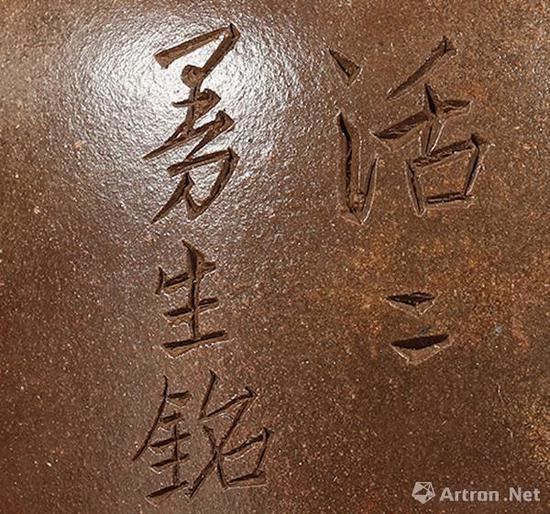 活二
勇生銘
Artron.Net